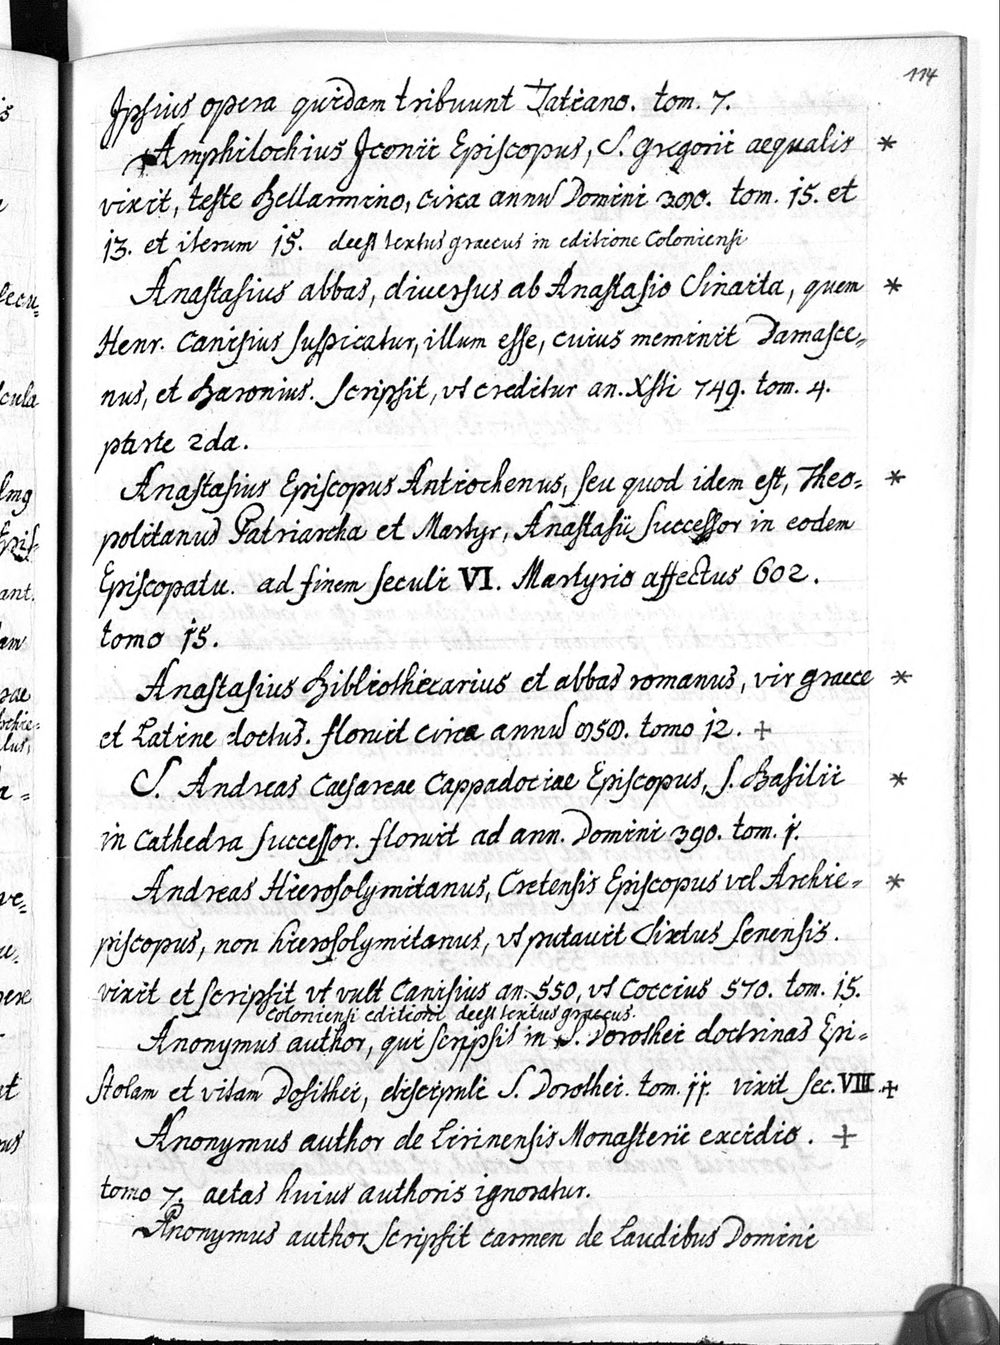 114
Ipsius opera quidam tribuunt Tatiano. tom. 7.
Amphilochius Iconii Episcopus, S. Gregorii aequalis *
vixit, teste Bellarmino, circa annū Domini 390. tom. 15. et
13. et iterum 15. deest textus graecus in editione Coloniensi
Anastasius abbas, diuersus ab Anastasio Sinaita, quem *
Henr. Canisius suspicatur, illum esse, cuius meminit Damasce=
nus, et Baronius. Scripsit, vt creditur an. Xsti 749. tom. 4.
parte 2da.
Anastasius Episcopus Antiochenus, seu quod idem est, Theo= *
politanus Patriarcha et Martyr, Anastasii successor in eodem
Episcopatu. ad finem seculi VI. Martyrio affectus 602.
tomo 15.
Anastasius Bibliothecarius et abbas romanus, vir graece *
et Latine doctus. floruit circa annū 858. tomo 12. +
S. Andreas Caesareae Cappadociae Episcopus, S. Basilii *
in Cathedra successor. floruit ad ann. Domini 390. tom. 1.
Andreas Hierosolymitanus, Cretensis Episcopus vel Archie= *
piscopus, non hierosolymitanus, vt putauit Sixtus Senensis.
vixit et scripsit vt vult Canisius an. 550, vt Coccius 570. tom. 15.
Coloniensi editioni deest textus graecus.
Anonymus author, qui scripsit in S. Dorothei doctrinas Epi=
stolam et vitam Dosithei, discipuli S. Dorothei. tom. 11. vixit sec. VIII. +
Anonymus author de Lirinensis Monasterii excidio. +
tomo 7. aetas huius authoris ignoratur.
Anonymus author scripsit carmen de Laudibus Domini